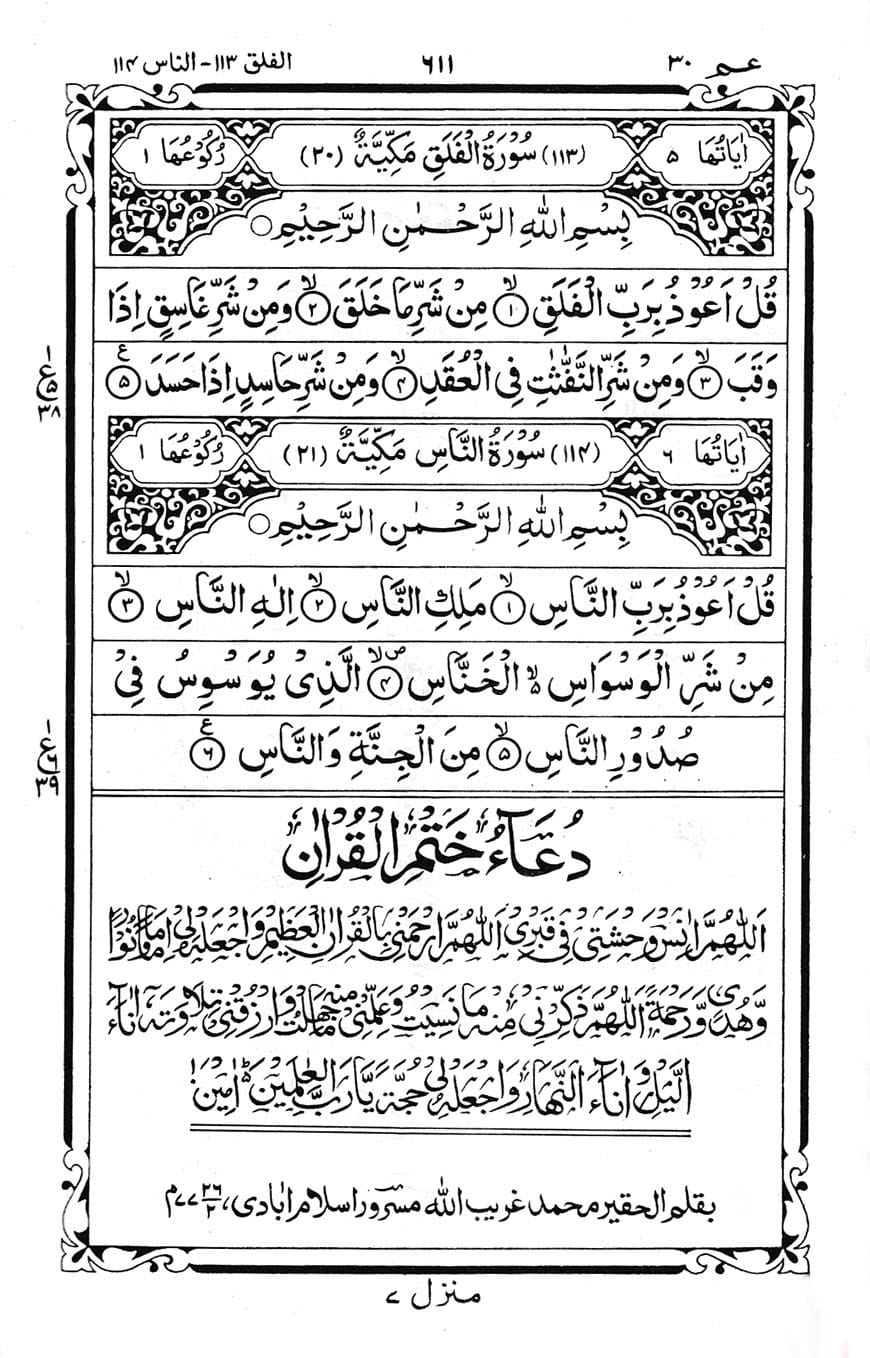 عـمـ ٣٠
٦١١
الفلق ١١٣ - الناس ١١۴
اٰيَاتُهَا ٥
(١١٣) سُوْرَةُ الْفَلَقِ مَكِّيَّةٌ (٢٠)
رُكُوْعُهَا ١
بِسْمِ اللّٰهِ الرَّحْمٰنِ الرَّحِيْمِ ○
قُلْ اَعُوْذُ بِرَبِّ الْفَلَقِ ۙ﴿١﴾ مِنْ شَرِّ مَا خَلَقَ ۙ﴿٢﴾ وَمِنْ شَرِّ غَاسِقٍ اِذَا
وَقَبَ ۙ﴿٣﴾ وَمِنْ شَرِّ النَّفّٰثٰتِ فِى الْعُقَدِ ۙ﴿۴﴾ وَمِنْ شَرِّ حَاسِدٍ اِذَا حَسَدَ ﴿٥﴾ ع
١
ع ٥
٣٨
اٰيَاتُهَا ٦
(١١۴) سُوْرَةُ النَّاسِ مَكِّيَّةٌ (٢١)
رُكُوْعُهَا ١
بِسْمِ اللّٰهِ الرَّحْمٰنِ الرَّحِيْمِ ○
قُلْ اَعُوْذُ بِرَبِّ النَّاسِ ۙ﴿١﴾ مَلِكِ النَّاسِ ۙ﴿٢﴾ اِلٰهِ النَّاسِ ۙ﴿٣﴾
مِنْ شَرِّ الْوَسْوَاسِ ۙ۬ الْخَنَّاسِ ۪ۙۖ﴿۴﴾ الَّذِىْ يُوَسْوِسُ فِىْ
صُدُوْرِ النَّاسِ ۙ﴿٥﴾ مِنَ الْجِنَّةِ وَالنَّاسِ ﴿٦﴾ ع
١
ع ٦
٣٩
دُعَآءُ خَتْمِ الْقُرْاٰنِ
اَللّٰهُمَّ اٰنِسْ وَحْشَتِىْ فِىْ قَبْرِىْ اَللّٰهُمَّ ارْحَمْنِىْ بِالْقُرْاٰنِ الْعَظِيْمِ وَاجْعَلْهُ لِىْ اِمَامًا وَّنُوْرًا
وَّهُدًى وَّرَحْمَةً اَللّٰهُمَّ ذَكِّرْنِىْ مِنْهُ مَا نَسِيْتُ وَعَلِّمْنِىْ مِنْهُ مَا جَهِلْتُ وَارْزُقْنِىْ تِلَاوَتَهٗ اٰنَآءَ
الَّيْلِ وَاٰنَآءَ النَّهَارِ وَاجْعَلْهُ لِىْ حُجَّةً يَّارَبَّ الْعٰلَمِيْنَ ؕ اٰمِيْن
بقلم الحقير محمد غريب اللّٰه مسرور اسلام اٰبادى، ٢٦/٢ ٧٧م
منزل ٧